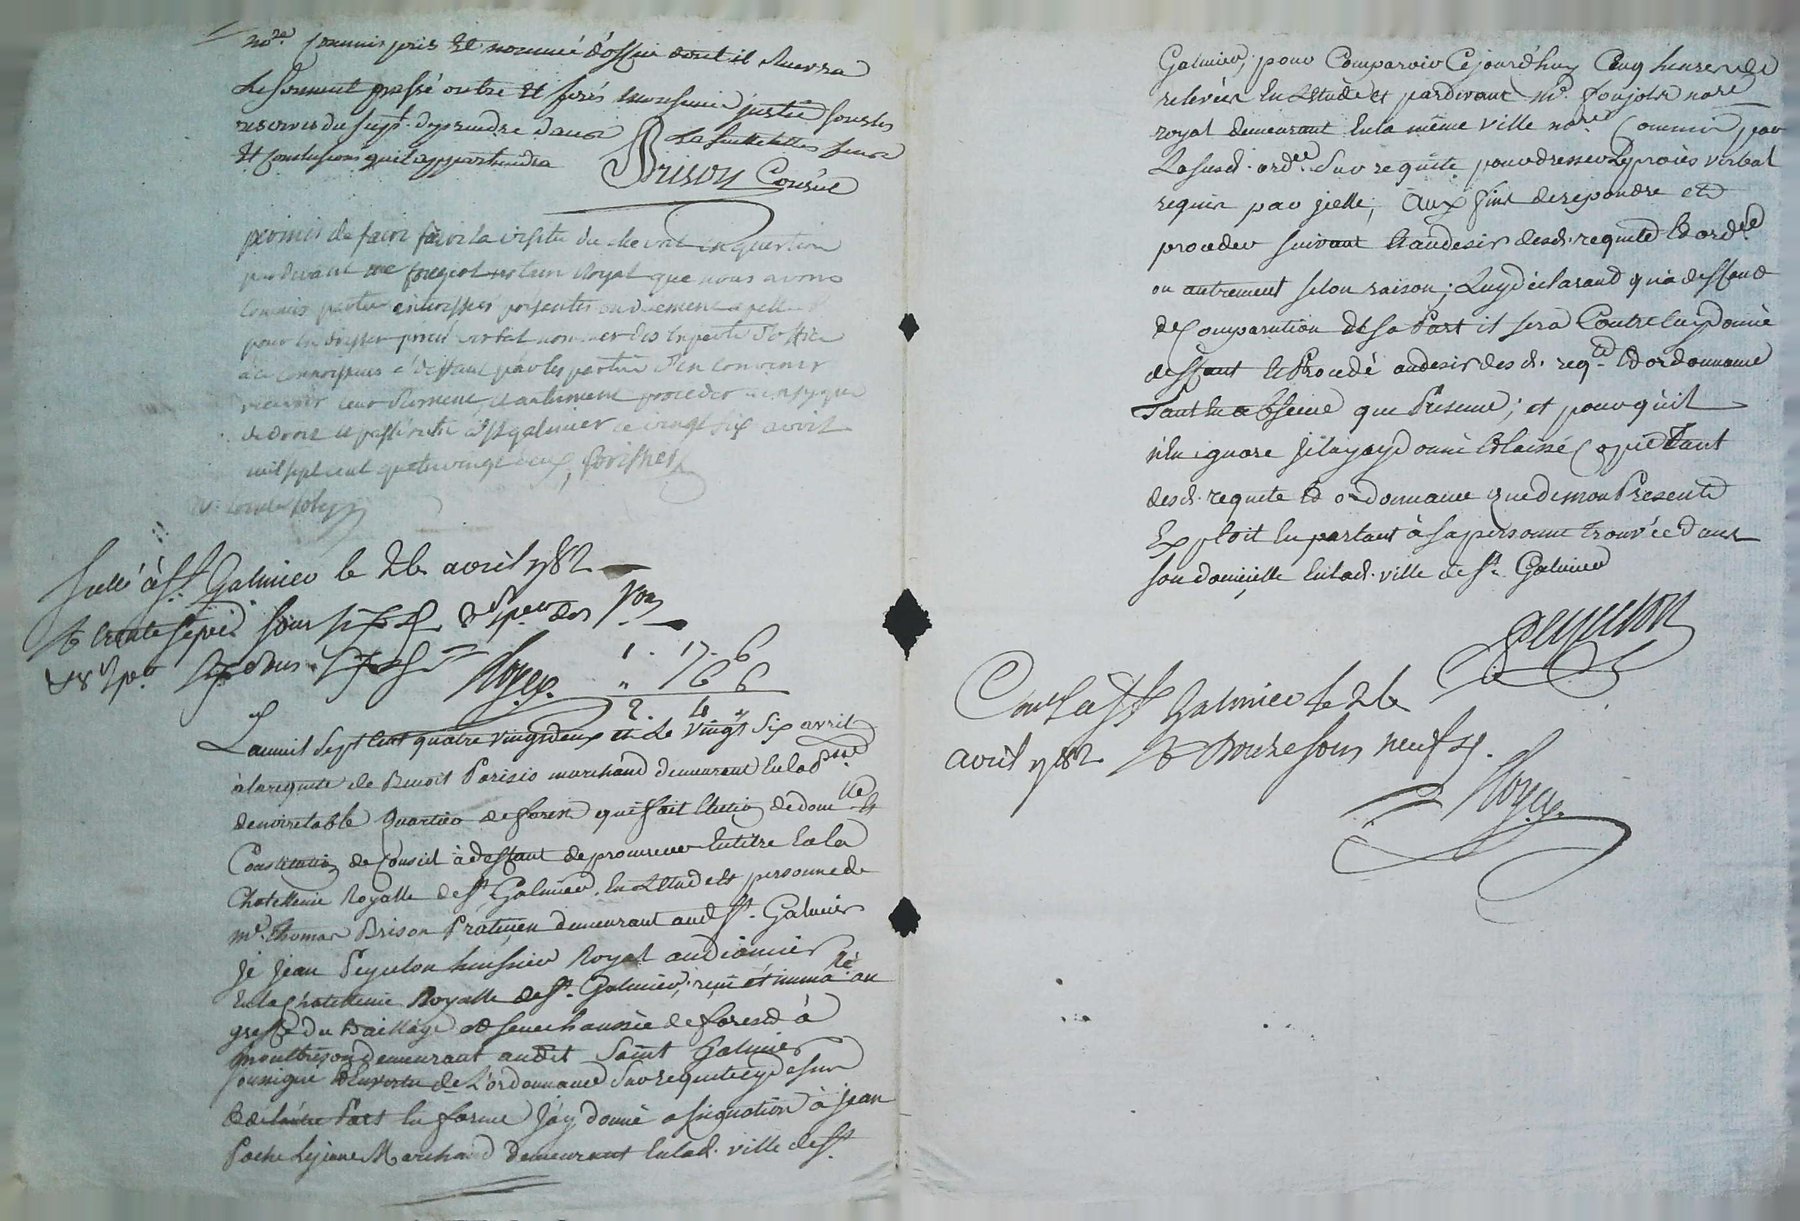 no.re Commis pris Et nommé d'office dont il Recevra
le serment passé outre Et serés Monsieur justice sous les
reserves du supt. de prendre dans la suitte telles fins
Et conclusions qu'il appartiendra
Brison Consul
permis de faire faire la visite du cheval en question
pardevant me fougeol notaire Royal que nous avons
Commis partie interessées presentes ou duement apellées
pour en dresser procès verbal nommer des Experts d'office
à ce Connoisseurs à deffaut par les parties d'en convenir
recevoir leur serment, et autrement proceder ainsy que
de droit et passé outre à St galmier ce vingt six avril
mil sept cent quatre vingt deux,
scellé à St. Galmier le 26 avril 1782
Rt trente sept sous
Royer.
1. 17. 6
" 6 6
2. 4 "
L'an mil Sept Cent quatre vingt deux et Le Vingt Six avril
à la requete de Benoit Parisis marchand demeurant En la psse.
de noiretable quartier de forest qui fait Election de domlle. &
Constitution de Conseil à deffaut de procureur En titre En la
Chatellenie Royalle de St. Galmier, En L'Etude et personne de
me. Thomas Brison Praticien demeurant aud St. Galmier
Je Jean Peyulon huissier Royal audiancier
En la Chatellenie Royalle de St. Galmier, reçu et immalé. au
greffe du Bailliage et Senechaussée de forest à
Montbrison demeurant audit Saint Galmier
soussigné En vertu de L'ordonnance Sur requete cy dessus
Et de l'autre Part En forme J'ay donné assignation à jean
Poche Le jeune Marchand demeurant En lad. ville de St.
Galmier, pour Comparoir Cejourd'huy Cinq heures de
relevée En L'Etude et pardevant me. foujols nore.
royal demeurant En la même ville nore. Commis par
La susd. ordce. Sur requête pour dresser Le procès verbal
requis par jcelle; Aux fins de repondre et
proceder suivant Et au desir desd. requete Et ordce.
ou autrement selon raison; Luy déclarant qu'a deffaut
de Comparution de Sa Part il sera Contre luy donné
deffaut Et Procedé au desir des d. reqte. Et ordonnance
Tant En absence que Presence; et pour qu'il
n'En ignore je luy ay donné Et laissé Copie Tant
desd. requete Et ordonnance que de mon Present
Exploit En parlant à sa personne trouvée dans
son domicille En lad. ville de St. Galmier
Peyulon
Conlé à St. Galmier le 26
avril 1782 Rt treize sous neuf d.
Royer.